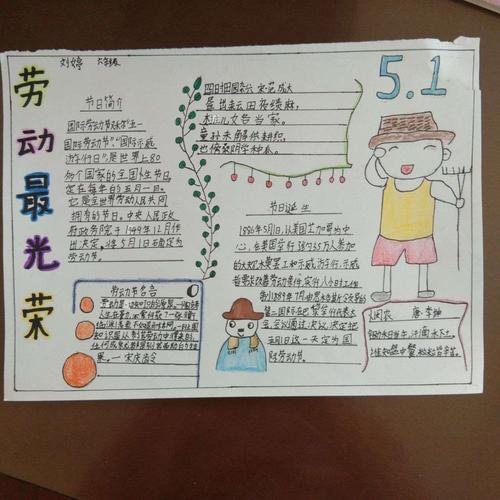 刘婷 六年级
劳动最光荣
节日简介
国际劳动节又称"五一
国际劳动节""国际示威
游行日"是世界上80
多个国家的全国性节日
定在每年的五月一日。
它是全世界劳动人民共同
拥有的节日。中央人民政
府政务院于1949年12月作
出决定,将5月1日确定为
劳动节。
四时田园杂兴 宋·范成大
昼出耘田夜绩麻,
村庄儿女各当家。
童孙未解供耕织,
也傍桑阴学种瓜。
5.1
节日诞生
1886年5月1日,以美国芝加哥为中
心,在美国举行
万人参加
的大规模罢工和示威游行,示威
者要求改善劳动条件,实行八小时工作
制1889年7月由恩格斯领导的
第二国际在巴黎举行代表大
会会议通过决议,决定把
五月1日这一天定为国
际劳动节。
劳动节名言
宋庆龄
悯农 唐·李绅
锄禾日当午,汗滴禾下土。
谁知盘中餐,粒粒皆辛苦。